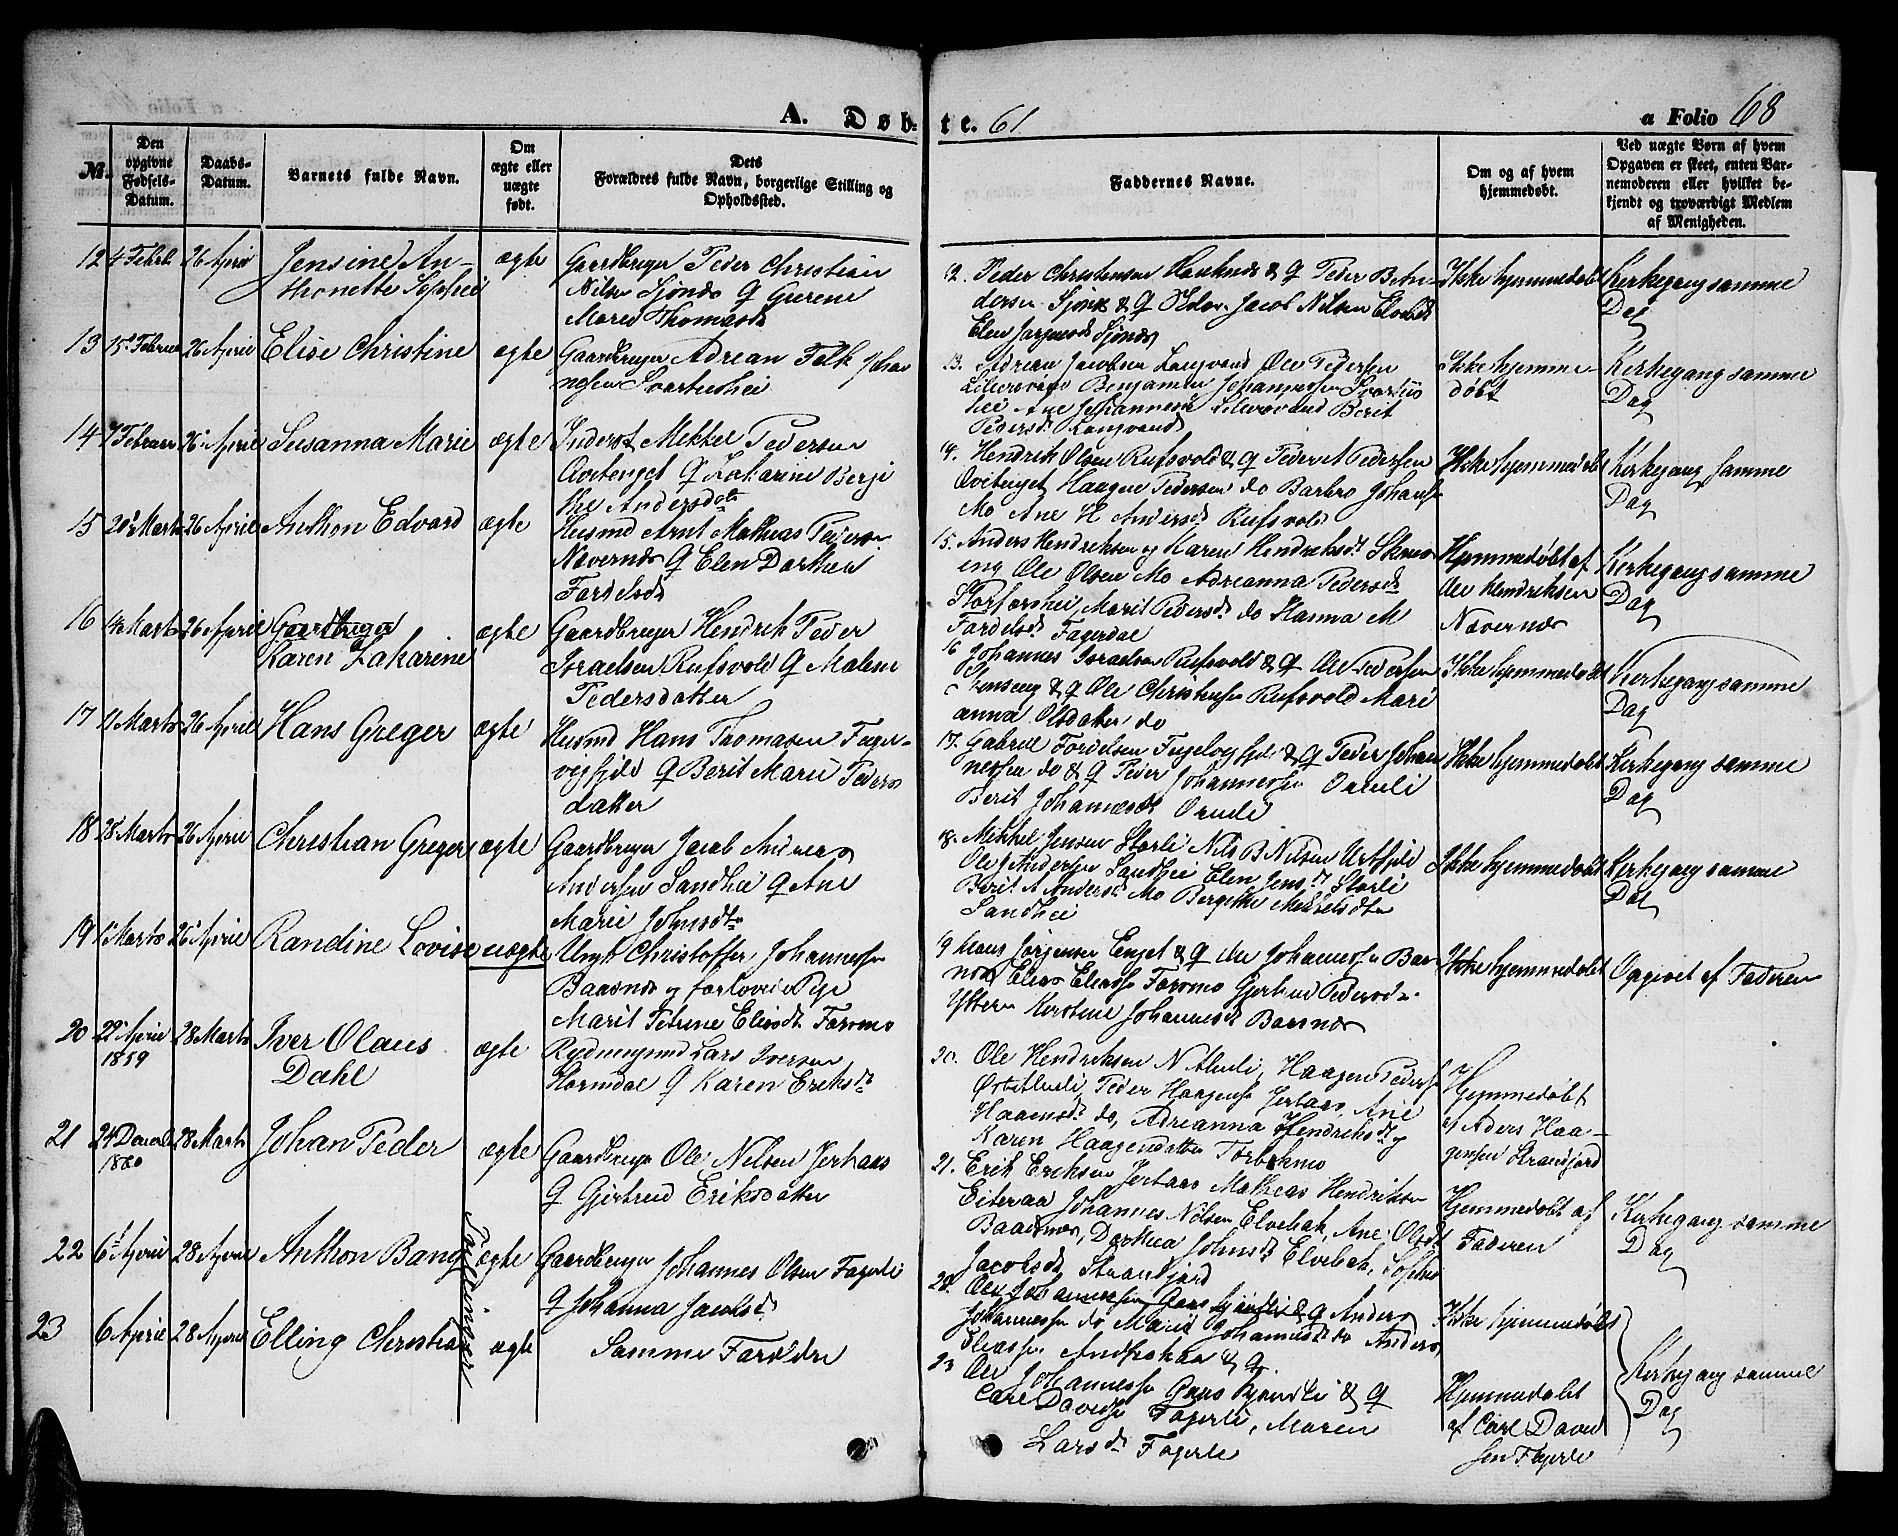 A. Døbte. 61
a Folio 68
№.
Den opgivne Fødsels-Datum.
Daabs-Datum.
Barnets fulde Navn.
Om ægte eller uægte født.
Dets Forældres fulde Navn, borgerlige Stilling og Opholdssted.
Faddernes Navne.
Om og af hvem hjemmedøbt.
Ved uægte Børn af hvem Opgaven er skeet, enten Barnemoderen eller hvilket bekjendt og troværdigt Medlem af Menigheden.
12 4 Febr 26 April Jensine An-
thonette Sophie
ægte
Gaardbruger Peder Christian
Nilsen Sjønes &
Mared Thomasd
12. Peder Christensen & Q Peder B An-
dersen Sjønes & Q Jacob Nilsen Elvebak
Elen Sjønes
Ikke hjemmedøbt
Kirkegang samme
Dag
13 15 Februar 26 April Elise Christine
ægte
Gaardbruger Adrean Falk Johan
nesen Svartishei
13. Adrean Jacobsen Langvand Ole Pedersen
Benjamin Johannesen Svartis
hei Ane Johannesd Berit
Pedersd Langvand
Ikke hjemme-
døbt
Kirkegang samme
Dag
14 7 Februar 26 April Susanna Marie
ægte
Inderst Mikkel Pedersen
Q Zakarine Berji
the Andersdtr
14. Hendrik Olsen Rufsvold & Q Pedersen
Haagen Pedersen do Barbro Johans
Mo Ane H Andersd Rufsvold
Ikke hjemmedøbt
Kirkegang samme
Dag
15 20 Marts 26 April Anthon Edvard
ægte
Husmd Arnt Mathias Peders
Nævernes Q Elen Dorthea
Fordelsd
15. Anders Hendriksen og Karen Hendriksd
eng Ole Olsen Mo Adreanna Pedersd
Storforshei, Marit Pedersd do Hanna M
Fordelsd Fagerdal
Hjemmedøbt af
Ole Hendriksen
Nævernes
Kirkegang samme
Dag
16 14 Marts 26 April Gaardbruger
Karen Zakarine
ægte
Gaardbruger Hendrik Peder
Israelsen Rufsvold Q Malene
Pedersdatter
16 Johannes Israelsen Rufsvold & Q Ole Pedersen
& Q Ole Christensen Rufsvold Mari
anna Olsdatter do
Ikke hjemmedøbt
Kirkegang samme
Dag
17 11 Marts 26 April Hans Greger
ægte
Husmd Hans Thomasen Fugel-
vegfjeld Q Berit Marie Peders
datter
17. Gabriel Fordelsen Fugelvegfjel & Q Peder Johan
nessen do & Q Peder Johannessen
Berit Johannesd
Ikke hjemmedøbt
Kirkegang samme
Dag
18 28 Marts 26 April Christian Greger
ægte
Gaardbruger Jacob Andreas
Andersen Sandhei Q Ane
Marie Johnsdtr
18. Mikkel Jensen Storli Nils B Nilsen Urtfjeld
Ole Andersen Sandhei Elen Jensd Storli
Berit A Andersd Mo Bergithe Mekkelsdtr
Sandhei
Ikke hjemmedøbt
Kirkegang samme
Dag
19 1 Marts 26 April Randine Lovise
uægte
Ungk Christoffer Johannessen
Baasnes og forlovede Pige
Marit Petrine Eliasd Forsmo
19 Claus Jørgensen Enget & Q Ole Johannessen Baas
nes Elias Eliass Forsmo Gjertrud Pedersdtr
Yttern Kirstine Johannesd Baasnes
Ikke hjemmedøbt
Opgivet af Faderen
20 22 April
1859
28 Marts Iver Olaus
Dahl
ægte
Rydningsmd Lars Iversen
Stormdal Q Karen Eriksd
20. Ole Hendriksen N Alteli, Haagen Peders
Øst Alteli, Peder Haagens Jerhaas, Ane
do, Adreanna Hendriksd og
Karen Haagensdatter
Hjemmedøbt
af Aders Haa-
gensen Strandjord
21 24
1860
28 Marts Johan Peder
ægte
Gaardbruger Ole Nilsen Jerhaas
Q Gjertrud Eriksdatter
21. Erik Eriksen Jerhaas Mathias Hendriksen
Eiteraa Johannes Nilsen Elvebak, Ane Olsd
Baasnes, Dorthea Johnsd Elvebak, Sophie
Jacobsd Strandjord
Hjemmedøbt af
Faderen
Kirkegang samme
Dag
22 6 April 28 April Anthon Bang
Tvillinger
ægte
Gaardbruger Johannes Olsen Fagerli
Q Johanna Jacobsd
Ole Johannessen & Q Anders
Johannessen do Marie Johannesd do Anders
Eliassen & Q.
Ikke hjemmedøbt
23 6 April 28 April Elling Christian
ægte
Samme Forældre
23 Ole Johannessen & Q
Carl Davids Fagerli, Maren
Larsd Fagerli
Hjemmedøbt
af Carl David
sen Fagerli
Kirkegang samme
Dag